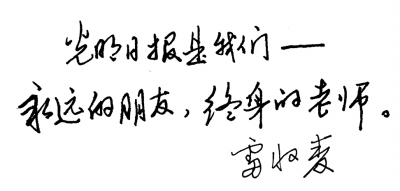 光明日报是我们——
永远的朋友，终身的老师。
雷收麦